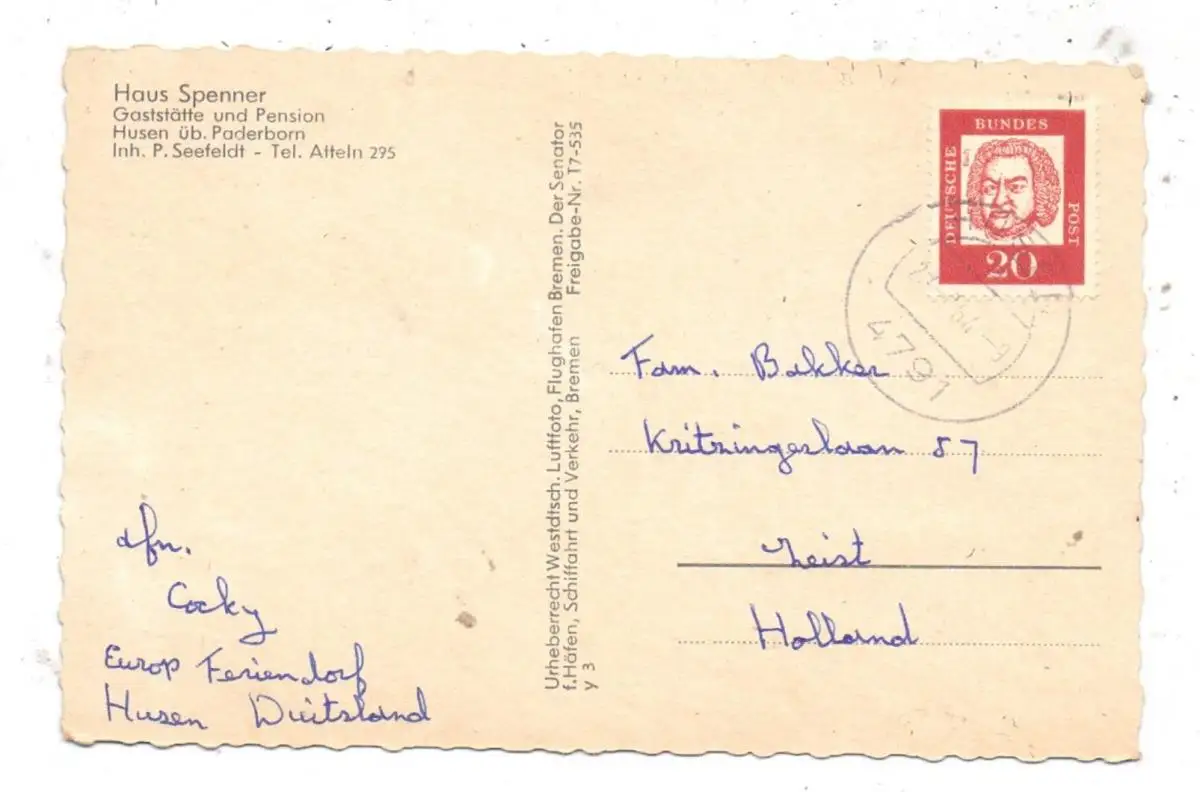 Haus Spenner
Gaststätte und Pension
Husen üb. Paderborn
Inh. P. Seefeldt - Tel. Atteln 295
Urheberrecht Westdtsch. Luftfoto, Flughafen Bremen. Der Senator
f. Häfen, Schiffahrt und Verkehr, Bremen Freigabe-Nr. T7-535
y 3
DEUTSCHE
BUNDES
POST
Bach
20
4791
64
Fam. Bakker
Kritzingerlaan 87
Zeist
Holland
afn.
Cocky
Europ Feriendorf
Husen Duitsland